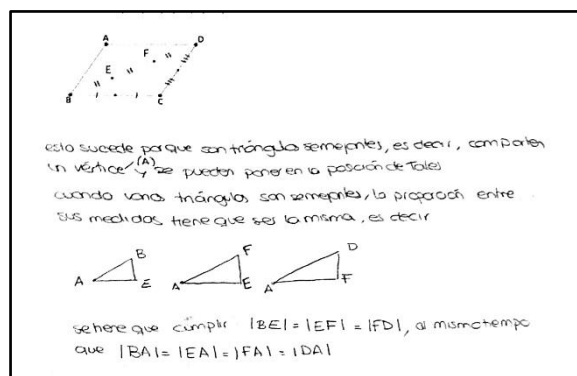 A D
F
E
B C
esto sucede porque son triángulos semejantes, es decir, comparten
un vértice (A) y se pueden poner en la posición de Tales
cuando varios triángulos son semejantes, la proporción entre
sus medidas tiene que ser la misma, es decir
B F D
A E A E A F
se tiene que cumplir |BE| = |EF| = |FD|, al mismo tiempo
que |BA| = |EA| = |FA| = |DA|